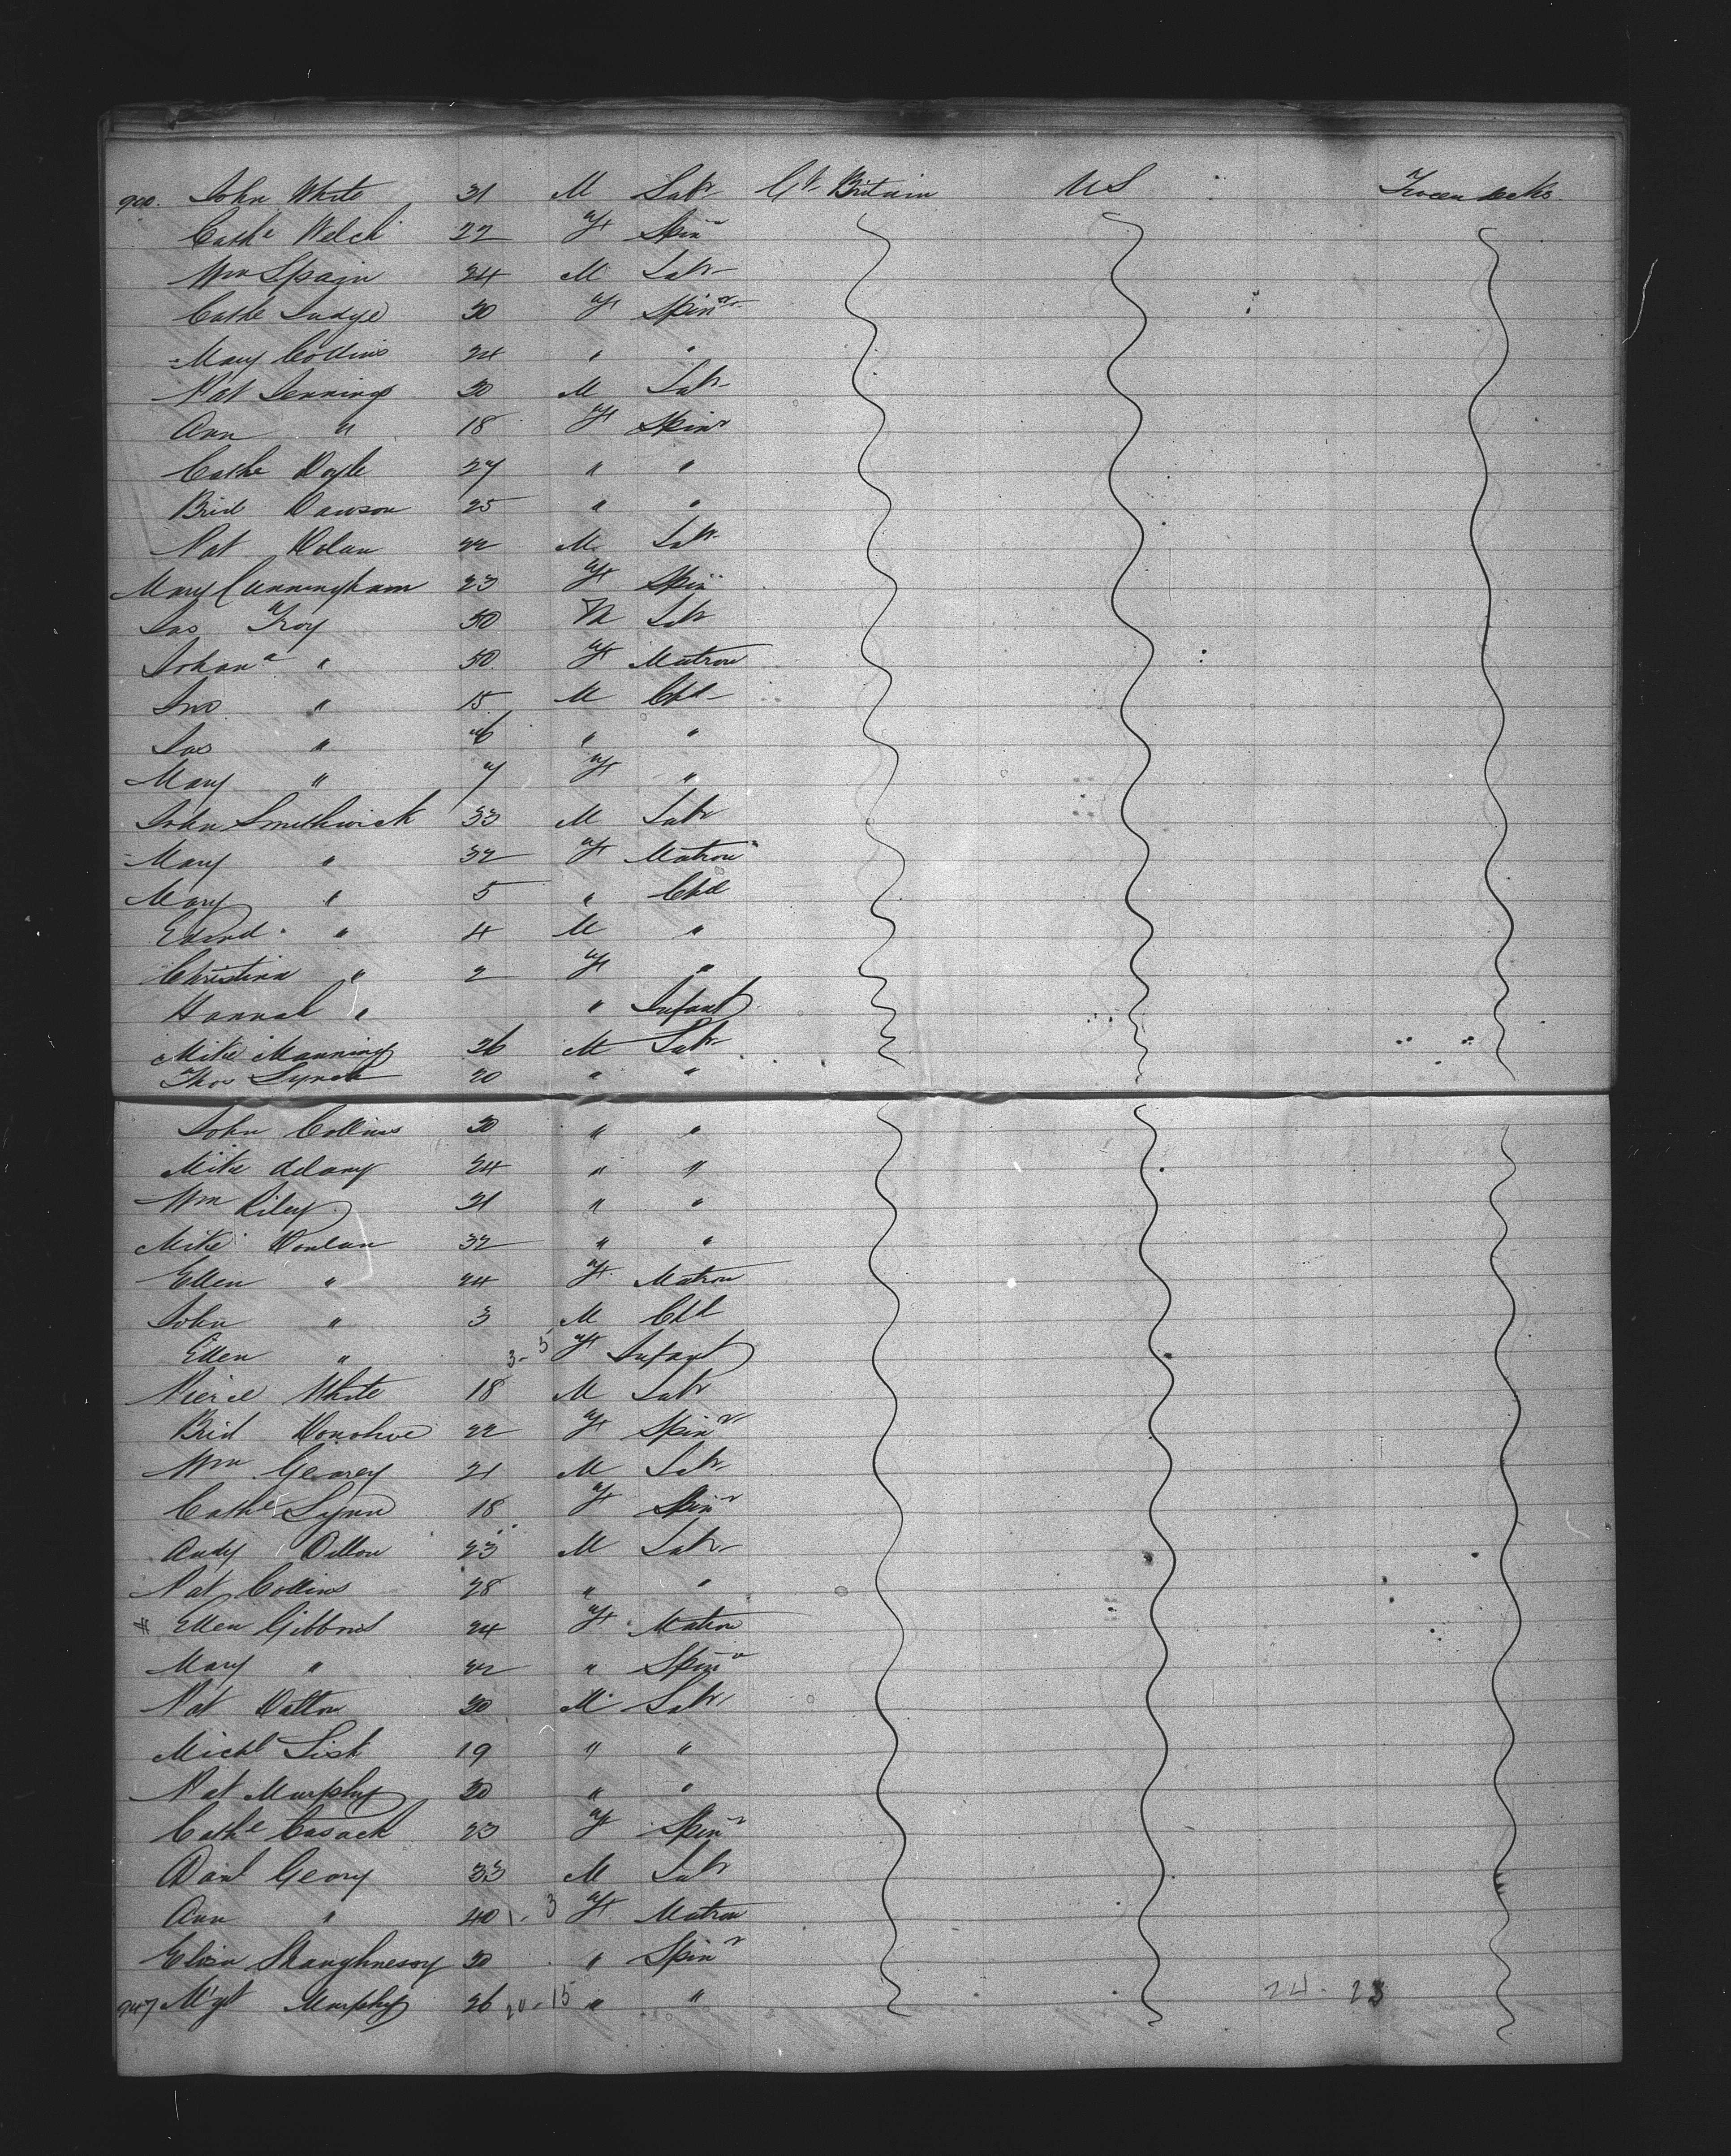 900. John White 31 M Labr Gt Britain US
Cathe Welch 22 F Spinr
Wm Spain 24 M Labr
Cathe Judge 30 F Spinr
Mary Collins 24 " "
Pat Jennings 30 M Labr
Ann " 18 F Spinr
Cathe Doyle 27 " "
Brid Dawson 25 " "
Pat Dolan 22 M Labr
Mary Cunningham 23 F Spinr
Jas Troy 50 M Labr
Johana " 50 F Matron
Jno " 15 M Chd
Jas " 6 " "
Mary " 7 F "
John Smithwick 33 M Labr
Mary " 32 F Matron
Mary " 5 " Chd
Edwd " 4 M "
Christina " 2 F "
Hannah " " Infant
Mike Manning 26 M Labr
Thos Lynch 20 " "
John Collins 30 " "
Mike delany 24 " "
Wm Riley 21 " "
Mike Donlan 32 " "
Ellen " 24 F Matron
John " 3 M Chd
Ellen " 3-5 F Infant
Pierce White 18 M Labr
Brid Donohue 22 F Spinr
Wm Gearey 21 M Labr
Cathe Lynn 18 F Spinr
Andy Dillon 23 M Labr
Pat Collins 28 " "
Ellen Gibbons 24 F Matron
Mary " 22 " Spinr
Pat Dalton 30 M Labr
Michl Lisk 19 " "
Pat Murphy 30 " "
Cathe Cusack 23 F Spinr
Danl Geary 33 M Labr
Ann " 40 1-3 F Matron
Eliza Shaughnessy 30 " Spinr
947 Mgt Murphy 26 20-15 " " 24-23